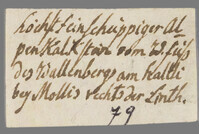 höchst feinschuppiger Al-
penkalkstein vom W. Fuss
des Wallenbergs am Kallti
bey Mollis rechts der Linth.
79